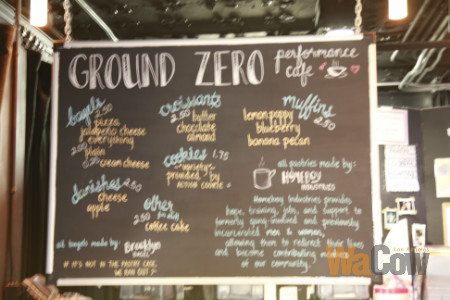 GROUND ZERO
performance
cafe
bagels
2.50
pizza
jalapeño cheese
everything
2.00
plain
0.50 cream cheese
danishes 2.50
cheese
apple
all bagels made by:
Brooklyn
BAGEL
IF IT'S NOT IN THE PASTRY CASE,
WE RAN OUT :'
croissants
2.50
butter
chocolate
almond
cookies 1.75
variety
provided by
cookie
other
2.50
coffee cake
muffins
2.50
lemon poppy
blueberry
banana pecan
all pastries made by:
HOMEBOY
INDUSTRIES
Homeboy Industries provides
hope, training, jobs, and support to
formerly gang-involved and previously
incarcerated men & women,
allowing them to redirect their lives
and become contributing members
of our community.
Los Angeles
WaCow